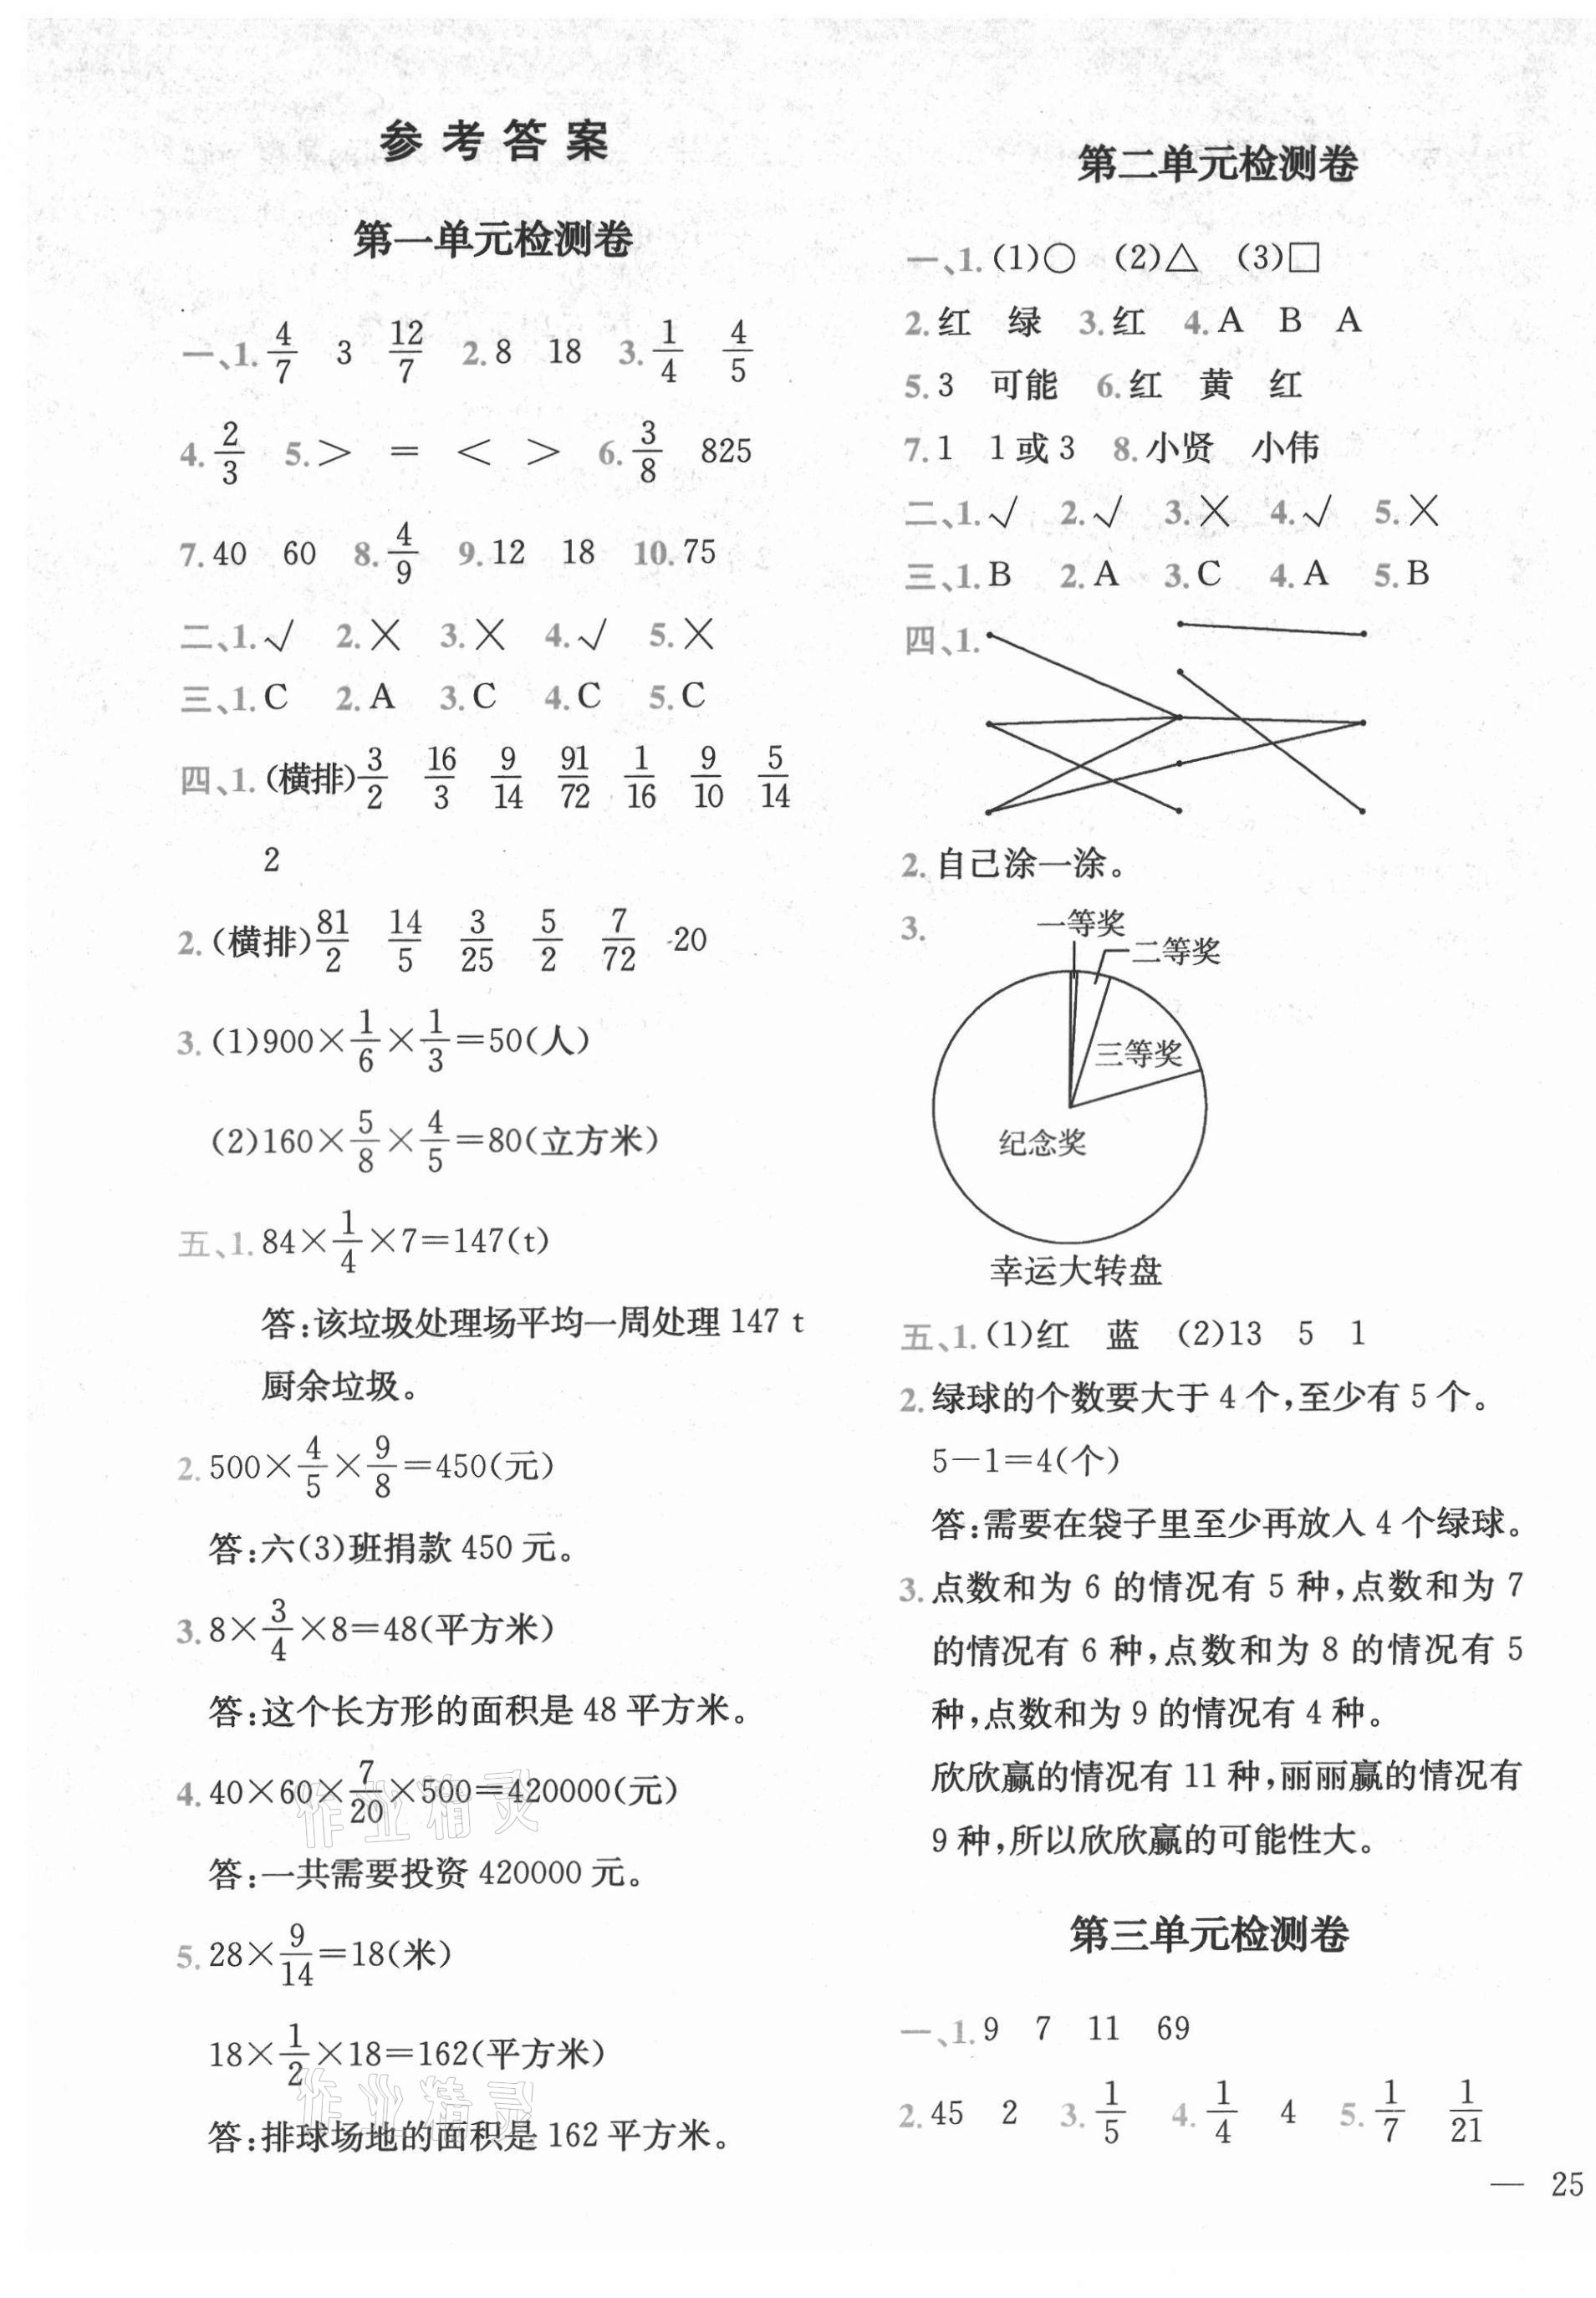 参考答案
第一单元检测卷
一、1. 4/7 3 12/7 2. 8 18 3. 1/4 4/5
4. 2/3 5. > = < > 6. 3/8 825
7. 40 60 8. 4/9 9. 12 18 10. 75
二、1. √ 2. × 3. × 4. √ 5. ×
三、1. C 2. A 3. C 4. C 5. C
四、1. (横排) 3/2 16/3 9/14 91/72 1/16 9/10 5/14
2
2. (横排) 81/2 14/5 3/25 5/2 7/72 20
3. (1)900×1/6×1/3=50(人)
(2)160×5/8×4/5=80(立方米)
五、1. 84×1/4×7=147(t)
答:该垃圾处理场平均一周处理 147 t
厨余垃圾。
2. 500×4/5×9/8=450(元)
答:六(3)班捐款 450 元。
3. 8×3/4×8=48(平方米)
答:这个长方形的面积是 48 平方米。
4. 40×60×7/20×500=420000(元)
作业精灵
答:一共需要投资 420000 元。
5. 28×9/14=18(米)
18×1/2×18=162(平方米)
作业精灵
答:排球场地的面积是 162 平方米。
第二单元检测卷
一、1. (1)○ (2)△ (3)□
2. 红 绿 3. 红 4. A B A
5. 3 可能 6. 红 黄 红
7. 1 1 或 3 8. 小贤 小伟
二、1. √ 2. √ 3. × 4. √ 5. ×
三、1. B 2. A 3. C 4. A 5. B
四、1.
2. 自己涂一涂。
3. 一等奖
二等奖
三等奖
纪念奖
幸运大转盘
五、1. (1)红 蓝 (2)13 5 1
2. 绿球的个数要大于 4 个,至少有 5 个。
5-1=4(个)
答:需要在袋子里至少再放入 4 个绿球。
3. 点数和为 6 的情况有 5 种,点数和为 7
的情况有 6 种,点数和为 8 的情况有 5
种,点数和为 9 的情况有 4 种。
欣欣赢的情况有 11 种,丽丽赢的情况有
9 种,所以欣欣赢的可能性大。
第三单元检测卷
一、1. 9 7 11 69
2. 45 2 3. 1/5 4. 1/4 4 5. 1/7 1/21
— 25